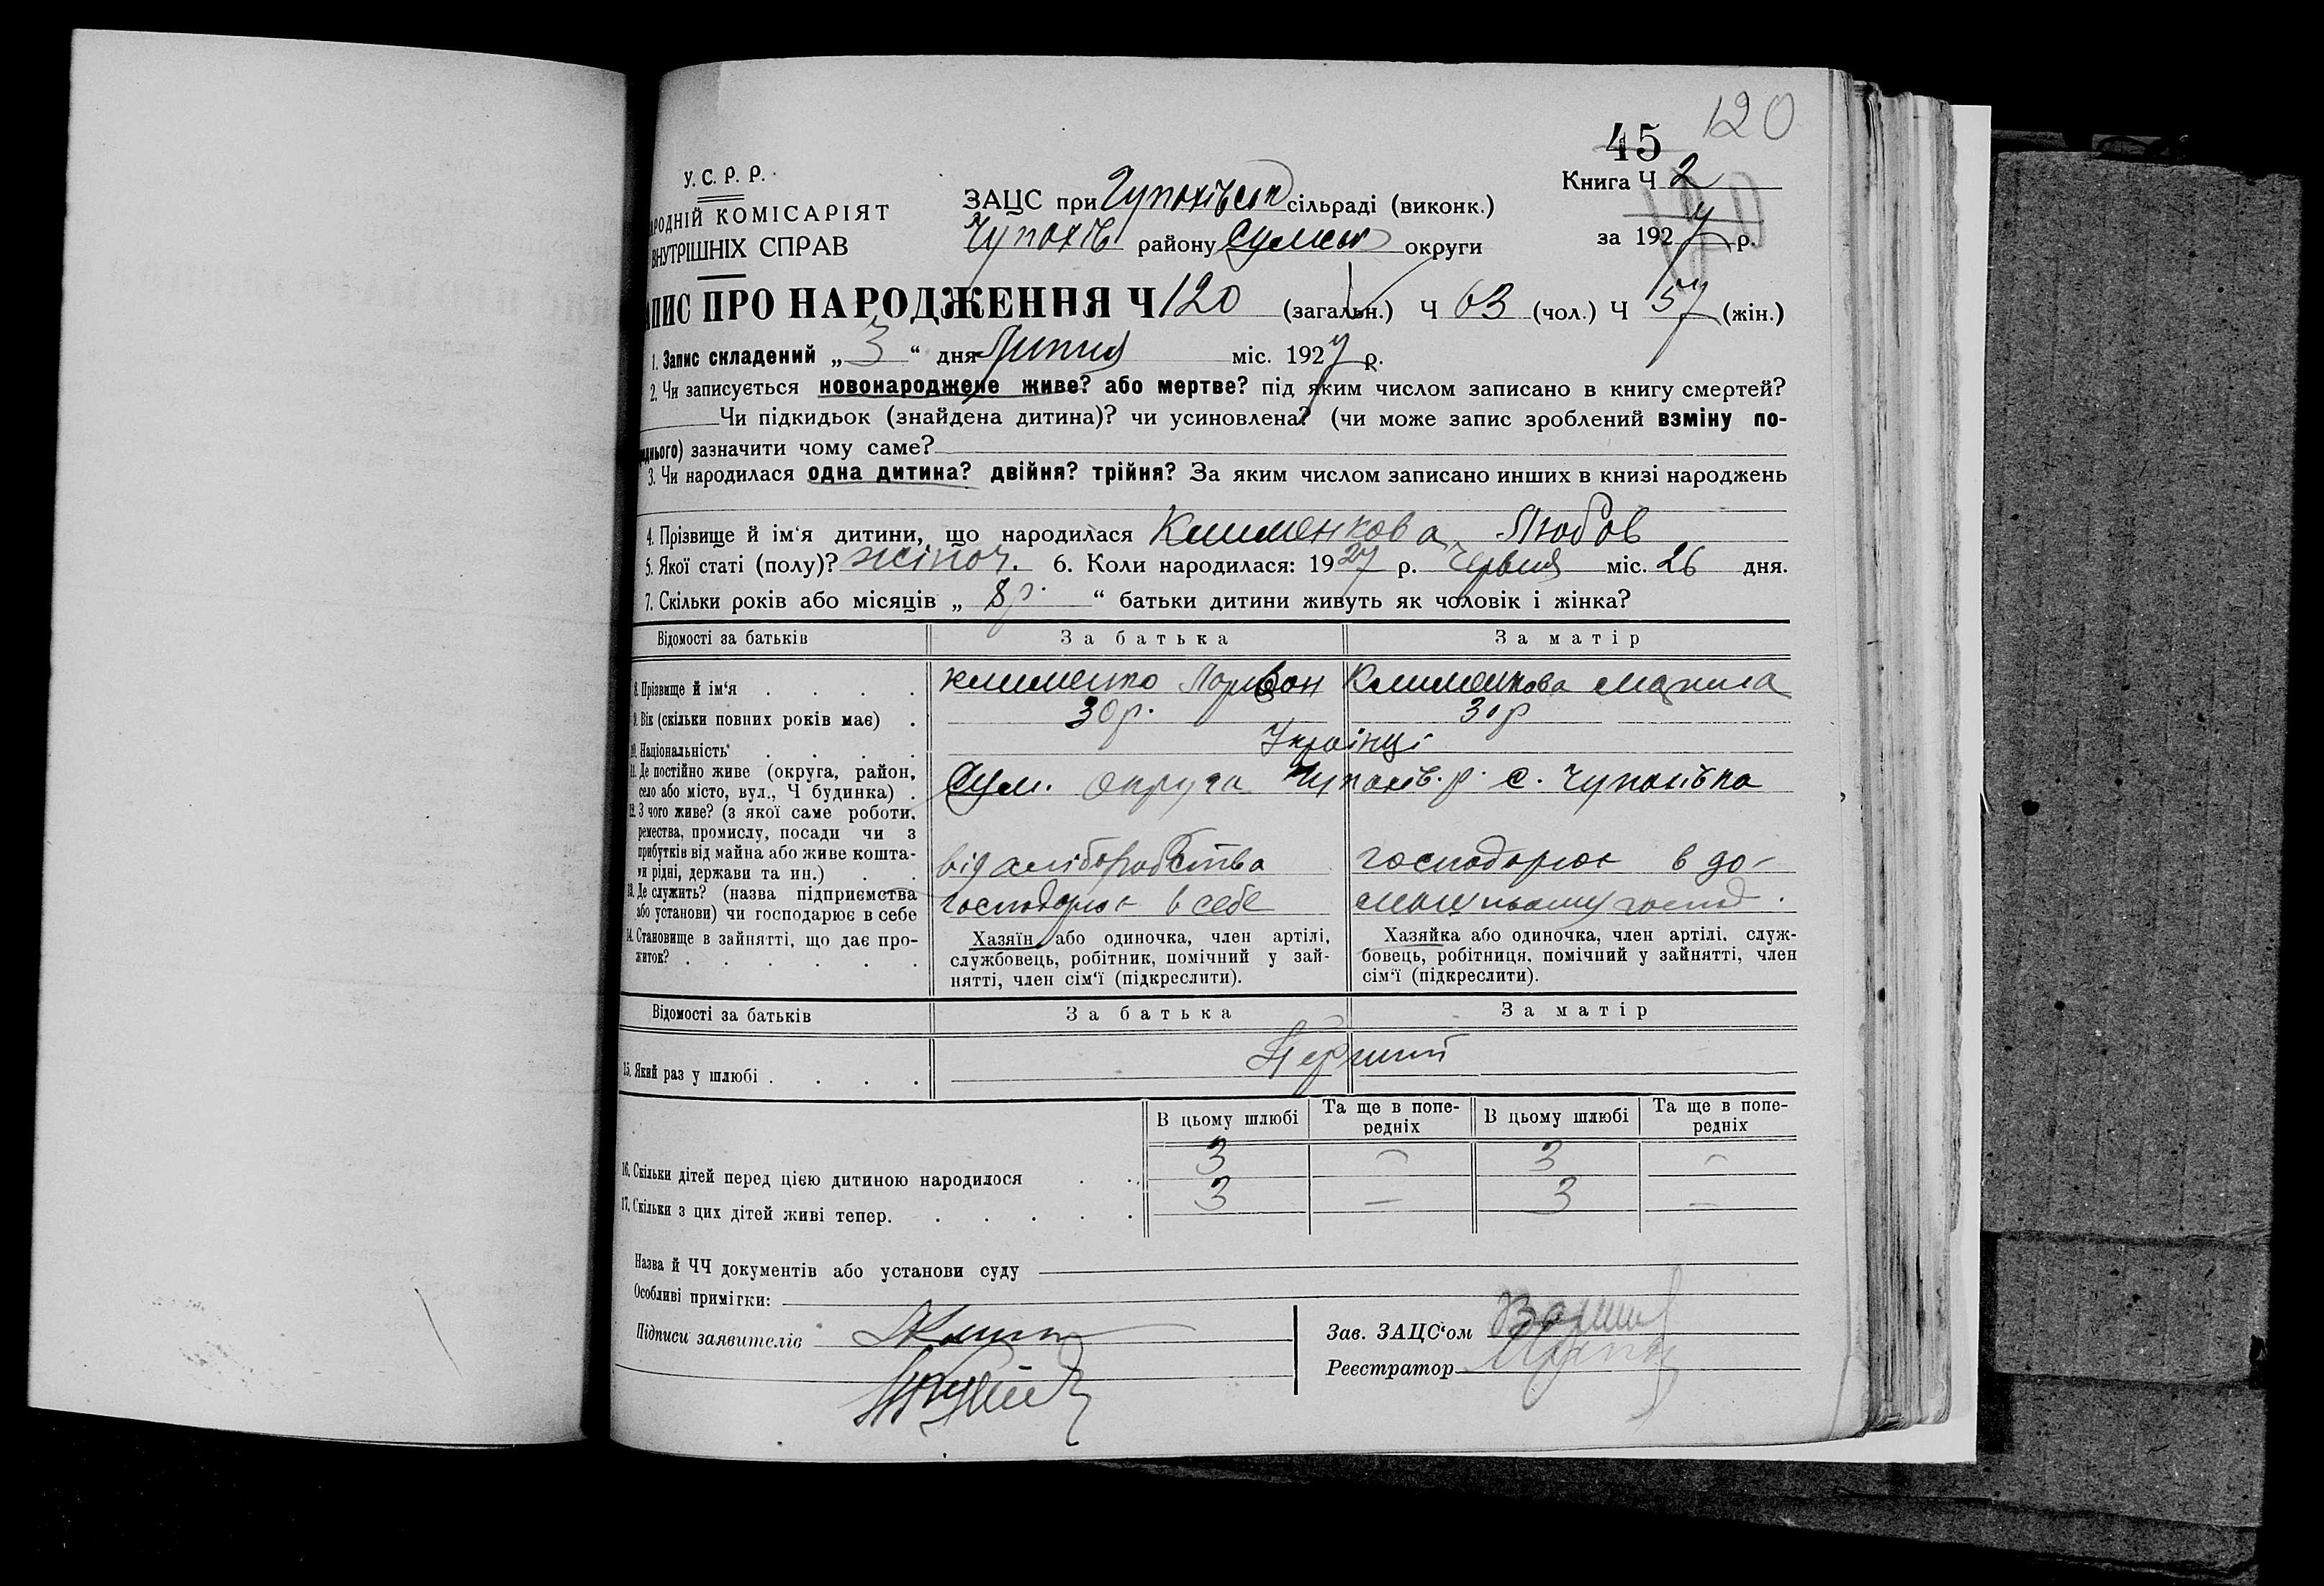 120
45
У. С. Р. Р.
Книга Ч 2
ЗАЦС при Чупахівськ сільраді (виконк.)
НАРОДНІЙ КОМІСАРІЯТ
Чупахів району Сумськ округи
за 1927 р.
ВНУТРІШНІХ СПРАВ
ЗАПИС ПРО НАРОДЖЕННЯ Ч 120 (загальн.) Ч 63 (чол.) Ч 57 (жін.)
1. Запис складений „ 3 “ дня Липня міс. 1927 р.
2. Чи записується новонароджене живе? або мертве? під яким числом записано в книгу смертей?
Чи підкидьок (знайдена дитина)? чи усиновлена? (чи може запис зроблений взміну по-
реднього) зазначити чому саме?
3. Чи народилася одна дитина? двійня? трійня? За яким числом записано инших в книзі народжень
4. Прізвище й ім‘я дитини, що народилася Клименкова Любов
5. Якої статі (полу)? жіноч. 6. Коли народилася: 1927 р. Червня міс. 26 дня.
7. Скільки років або місяців „ 8 р. “ батьки дитини живуть як чоловік і жінка?
Відомості за батьків За батька За матір
8. Прізвище й ім‘я . . . . Клименко Ларивон Клименкова
9. Вік (скільки повних років має) . 30 р. 30 р
10. Національність . . . . Українці
11. Де постійно живе (округа, район,
село або місто, вул., Ч будинка) . Сум. округа Чупахів. р. с. Чупахівка
12. З чого живе? (з якої саме роботи,
ремества, промислу, посади чи з
прибутків від майна або живе кошта-
ми рідні, держави та ин.) . . від хліборобства господарює в до-
13. Де служить? (назва підприємства
або установи) чи господарює в себе господарює в себе машньому господ.
14. Становище в зайнятті, що дає про-
житок? . . . . . .
Хазяїн або одиночка, член артілі,
службовець, робітник, помічний у зай-
нятті, член сім‘ї (підкреслити).
Хазяйка або одиночка, член артілі, служ-
бовець, робітниця, помічний у зайнятті, член
сім‘ї (підкреслити).
Відомості за батьків За батька За матір
15. Який раз у шлюбі . . . . Перший
В цьому шлюбі Та ще в попе-
редніх В цьому шлюбі Та ще в попе-
редніх
16. Скільки дітей перед цією дитиною народилося . . 3 — 3 —
17. Скільки з цих дітей живі тепер. . . . . . 3 — 3 —
Назва й ЧЧ документів або установи суду
Особливі примігки:
Підписи заявителів
Зав. ЗАЦС‘ом
Реєстратор